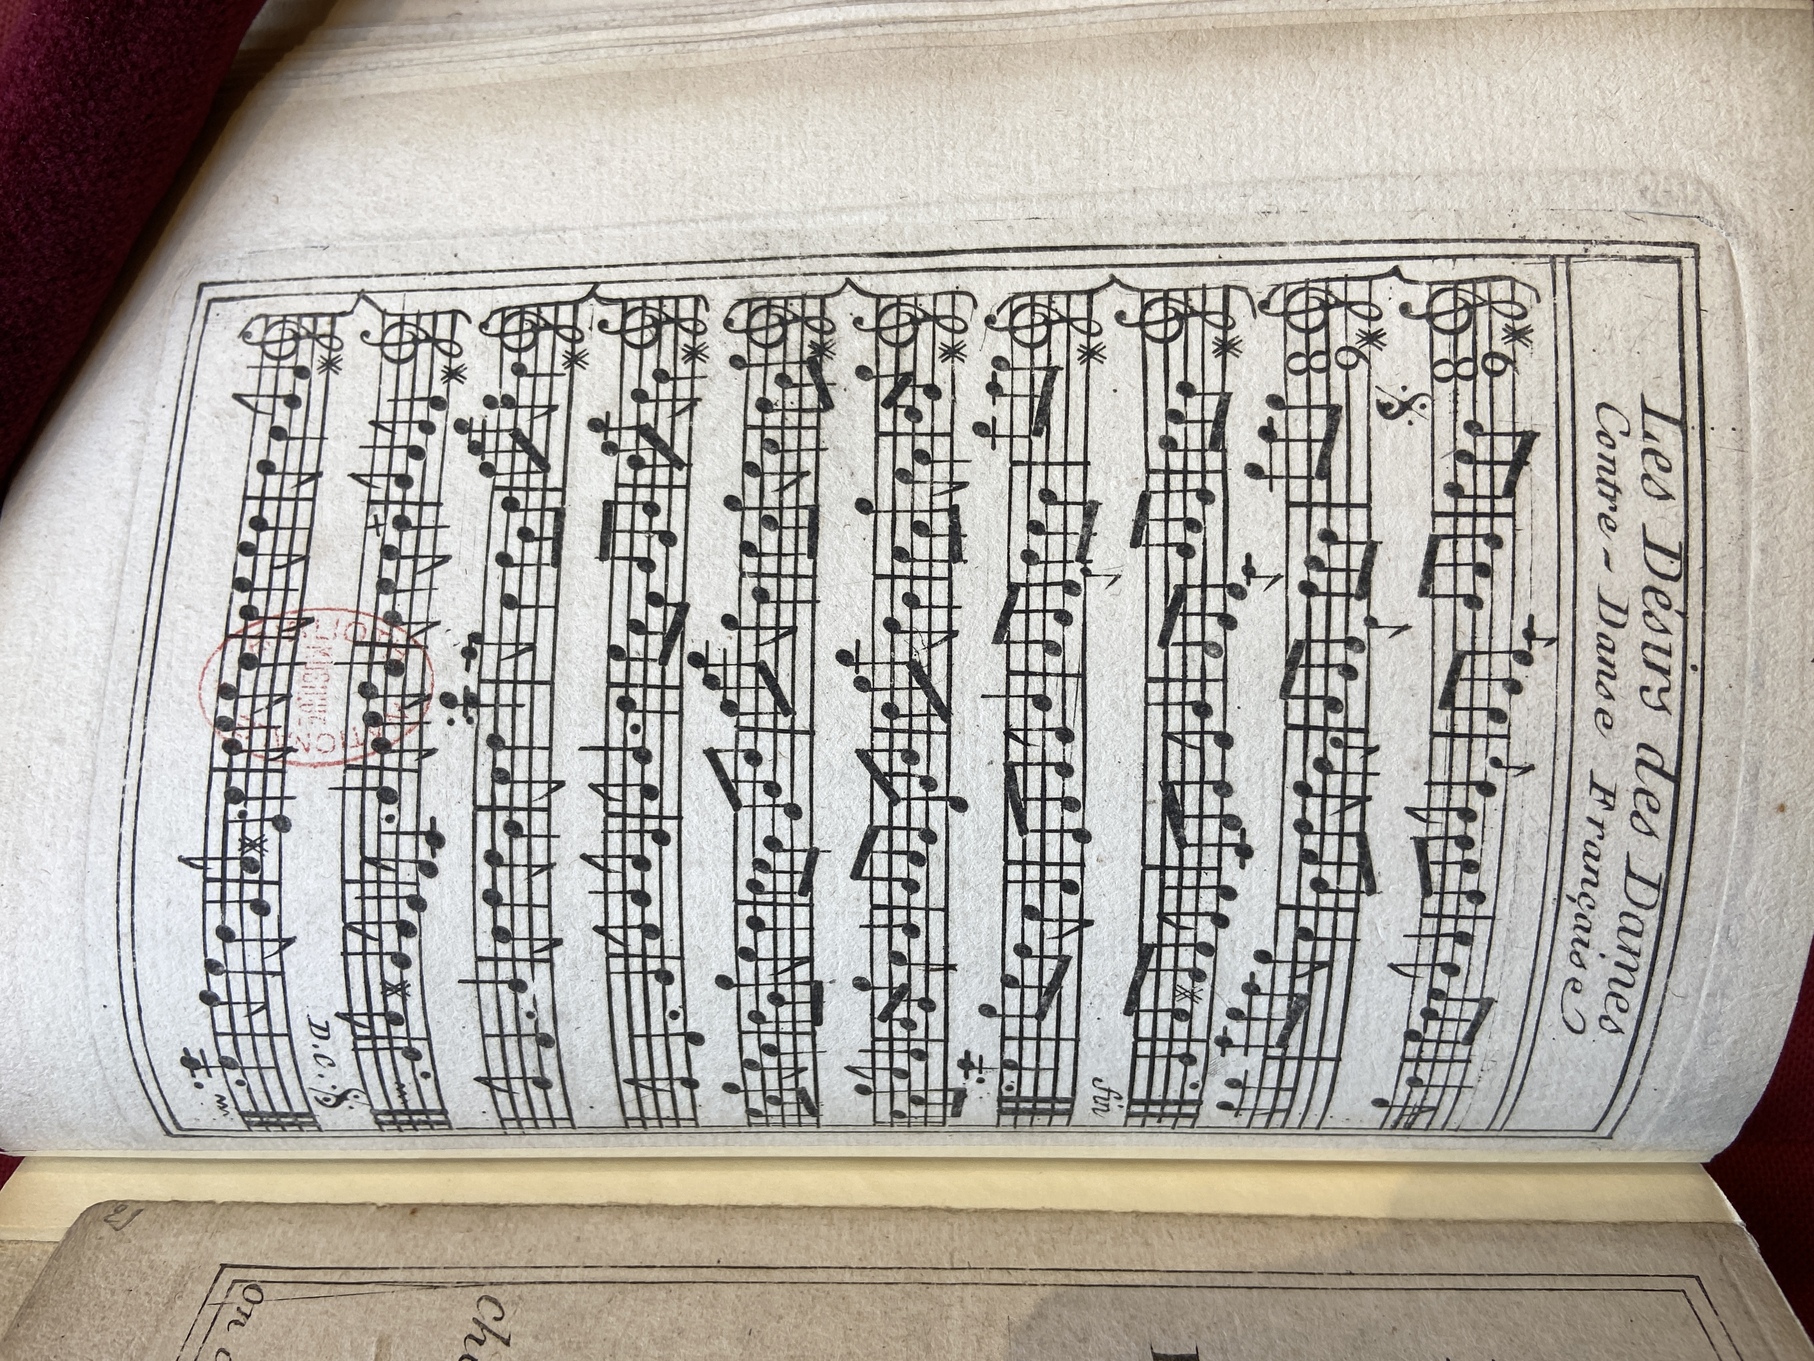 Les Désirs des Dames
Contre-Danse Française
6
8
6
8
fin
D.C.
On
Ch